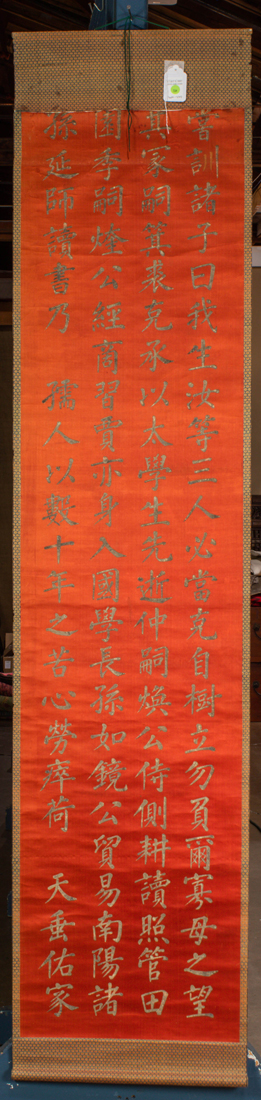 嘗訓諸子曰我生汝等三人必當克自樹立勿負爾寡母之望
其冢嗣箕裘克承以太學生先逝仲嗣煥公侍側耕讀照管田
園季嗣燈公經商習賈亦身入國學長孫如鏡公貿易南陽諸
孫延師讀書乃 孺人以數十年之苦心勞瘁荷 天垂佑家